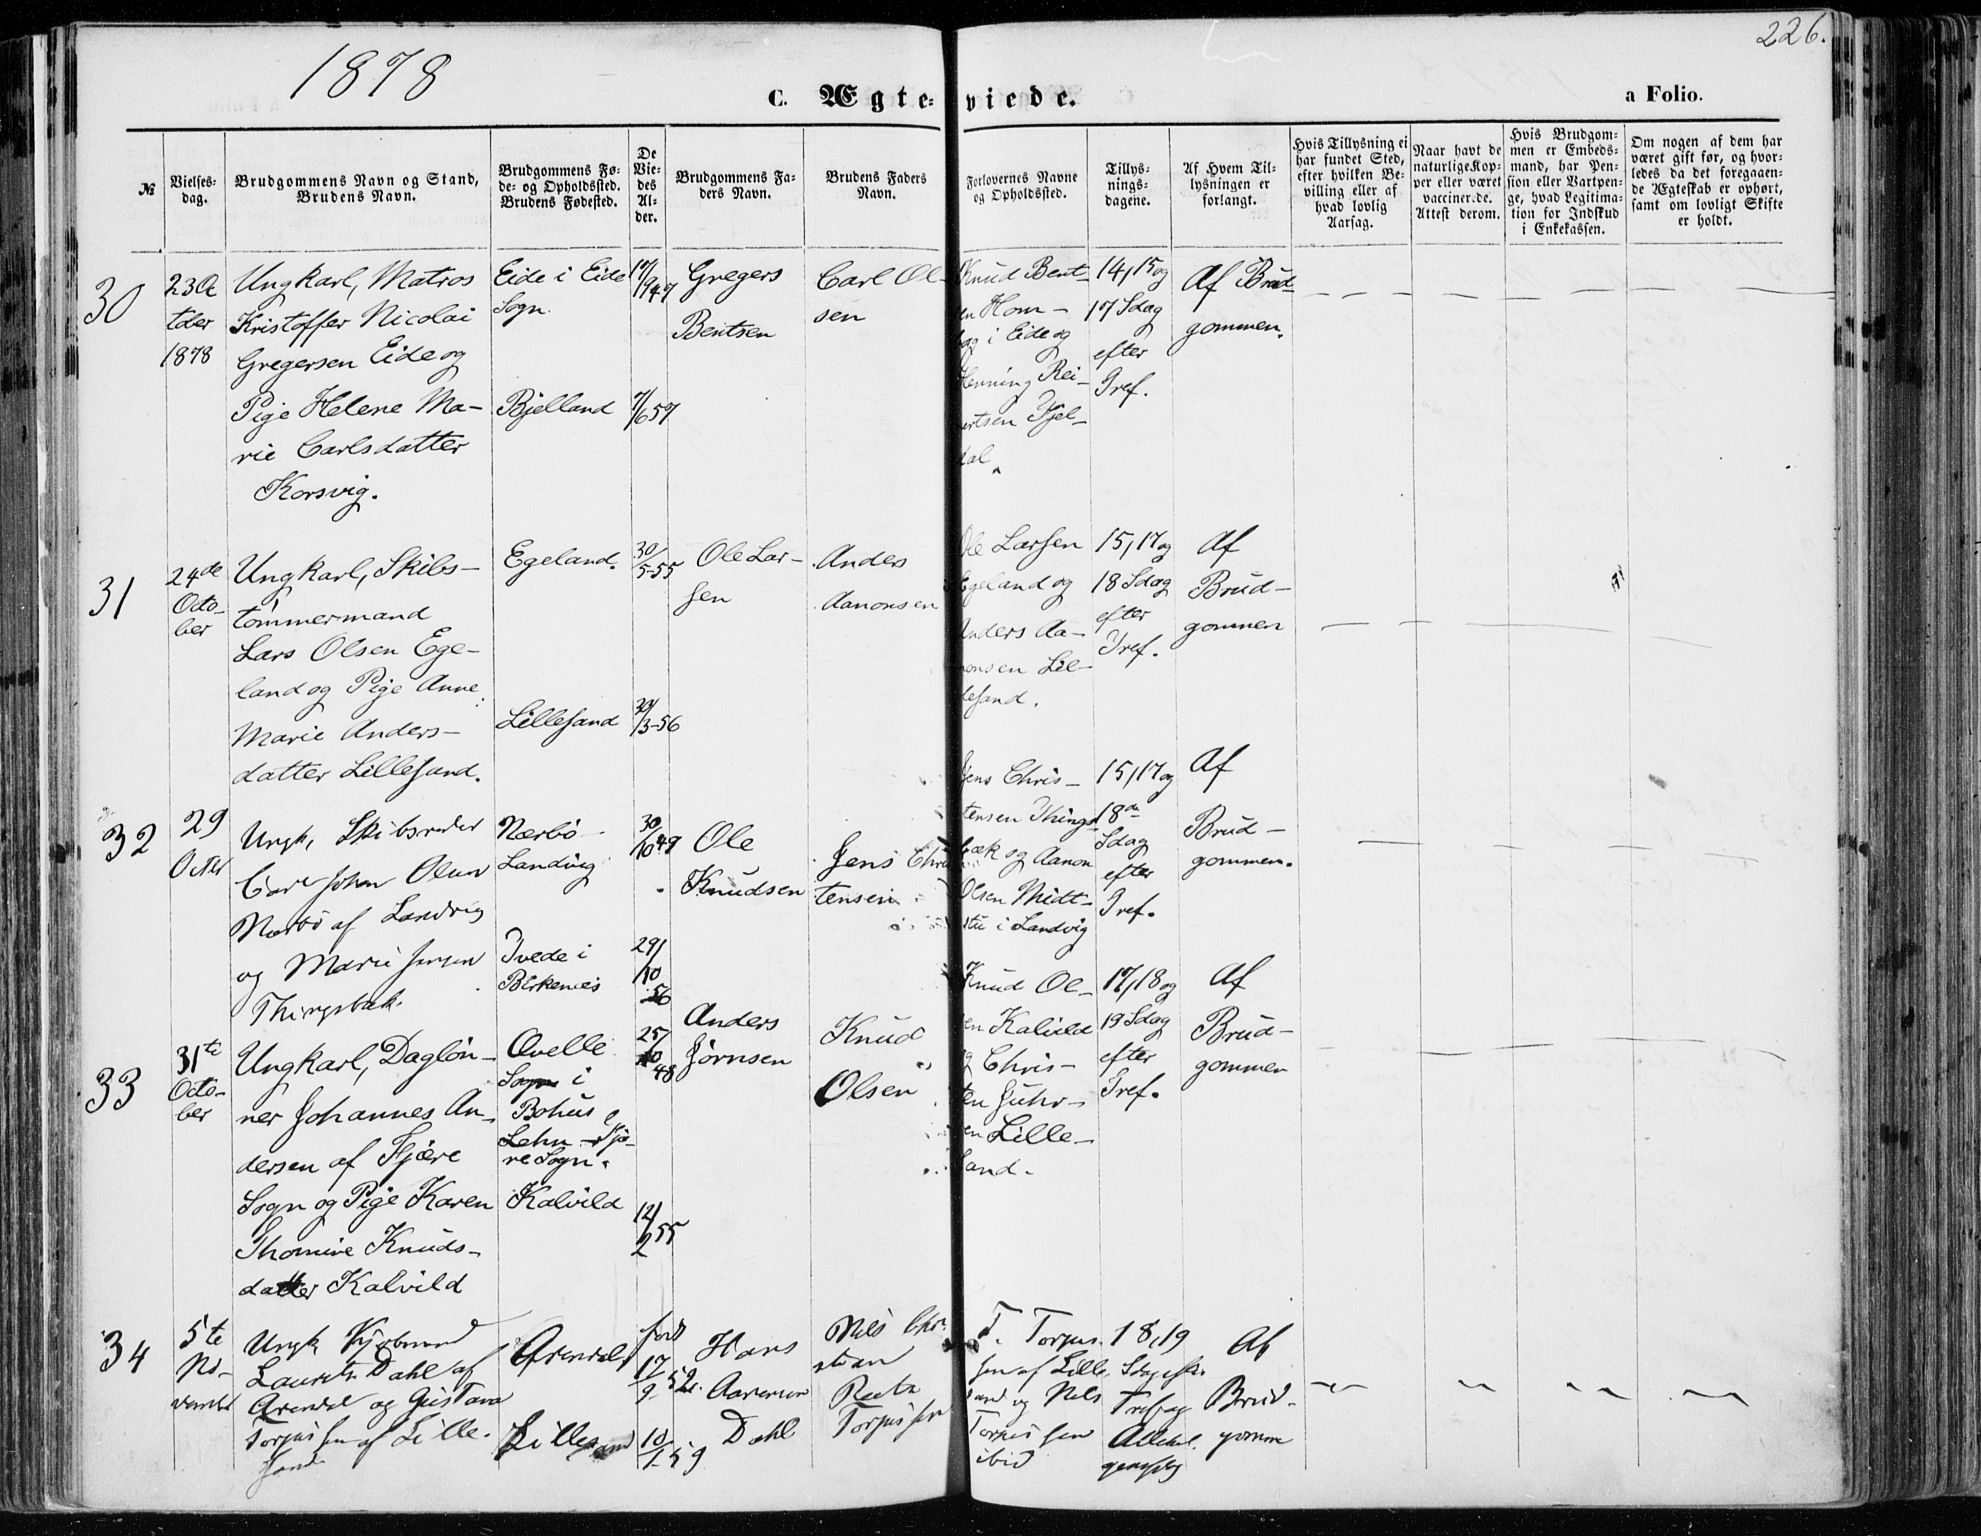 1878
226.
C. Ægteviede.
a Folio.
№
Vielses-
dag.
Brudgommens Navn og Stand,
Brudens Navn.
Brudgommens Fø-
de- og Opholdssted.
Brudens Fødested.
De
Vie-
des
Al-
der.
Brudgommens Fa-
ders Navn.
Brudens Faders
Navn.
Forlovernes Navne
og Opholdssted.
Tillys-
nings-
dagene.
Af Hvem Til-
lysningen er
forlangt.
Hvis Tillysning ei
har fundet Sted,
efter hvilken Be-
villing eller af
hvad lovlig
Aarsag.
Naar havt de
naturlige Kop-
per eller været
vaccinerde.
Attest derom.
Hvis Brudgom-
men er Embeds-
mand, har Pen-
sion eller Vartpen-
ge, hvad Legitima-
tion for Indskud
i Enkekassen.
Om nogen af dem har
været gift før, og hvor-
ledes da det foregaaen-
de Ægteskab er ophørt,
samt om lovligt Skifte
er holdt.
30
23 Oc
tber
1878
Ungkarl, Matros
Kristoffer Nicolai
Gregersen Eide og
Pige Helene Ma-
rie Carlsdatter
Korsvig.
Eide i Eide
Sogn.
Bjelland
17/9 47
7/6 57
Gregers
Bentsen
Carl Ol-
sen
Knud Bent-
sen Hom-
borg i Eide og
Henning Rei-
ertsen Kjel-
dal
14, 15 og
17 Sdag
efter
Tref.
Af Brud-
gommen.
31
24de
Octo-
ber
Ungkarl, Skibs-
tømmermand
Lars Olsen Ege-
land og Pige Anne
Marie Anders-
datter Lillesand.
Egeland.
Lillesand
30/5-55
30/3-56
Ole Lar-
sen
Anders
Aanonsen
Ole Larsen
Egeland og
Anders Aa-
nonsen Lil-
lesand.
15, 17 og
18 Sdag
efter
Tref.
Af
Brud-
gommen
32
29
Octbr
Ungk, Skibsreder
Carl Johan Olsen
Nærbø af Landvig
og Marie Jensen
Thingsbæk.
Nærbø
Landvig
Tvede i
Birkenes
30/10 49
29/10 56
Ole
Knudsen
Jens Chris
tensen
Jens Chris-
tensen Things
bæk og Aanon
Olsen Midt-
stu i Landvig
15, 17 og
18de
Sdag
efter
Tref.
Af
Brud-
gommen.
33
31te
Octo-
ber
Ungkarl, Dagløn-
ner Johannes An-
dersen af Fjære
Sogn og Pige Karen
Thomine Knuds-
datter Kalvild
Qvelle
Sogn i
Bohus
Lehn - Fjæ-
re Sogn.
Kalvild
25/10 48
12/2 55
Anders
Jørnsen
Knud
Olsen
Knud Ol-
sen Kalvild
og Chris-
ten Juhr-
sen Lille-
sand.
17, 18 og
19 Sdag
efter
Tref.
Af
Brud-
gommen
34
5te
No-
vember
Ungk
Laurits Dahl af
Arendal og Gustava
Torjussen af Lille-
sand
Arendal
Lillesand
født
17/9 52.
10/1 59
Hans
Aanensen
Dahl
Nils Chri
stian
Torjussen
T. Torjus-
sen af Lille
sand og Nils
Torjussen
ibid
18, 19
Sdag eft.
Tref og
Allehel
gensdag
Af
Brud-
gomme